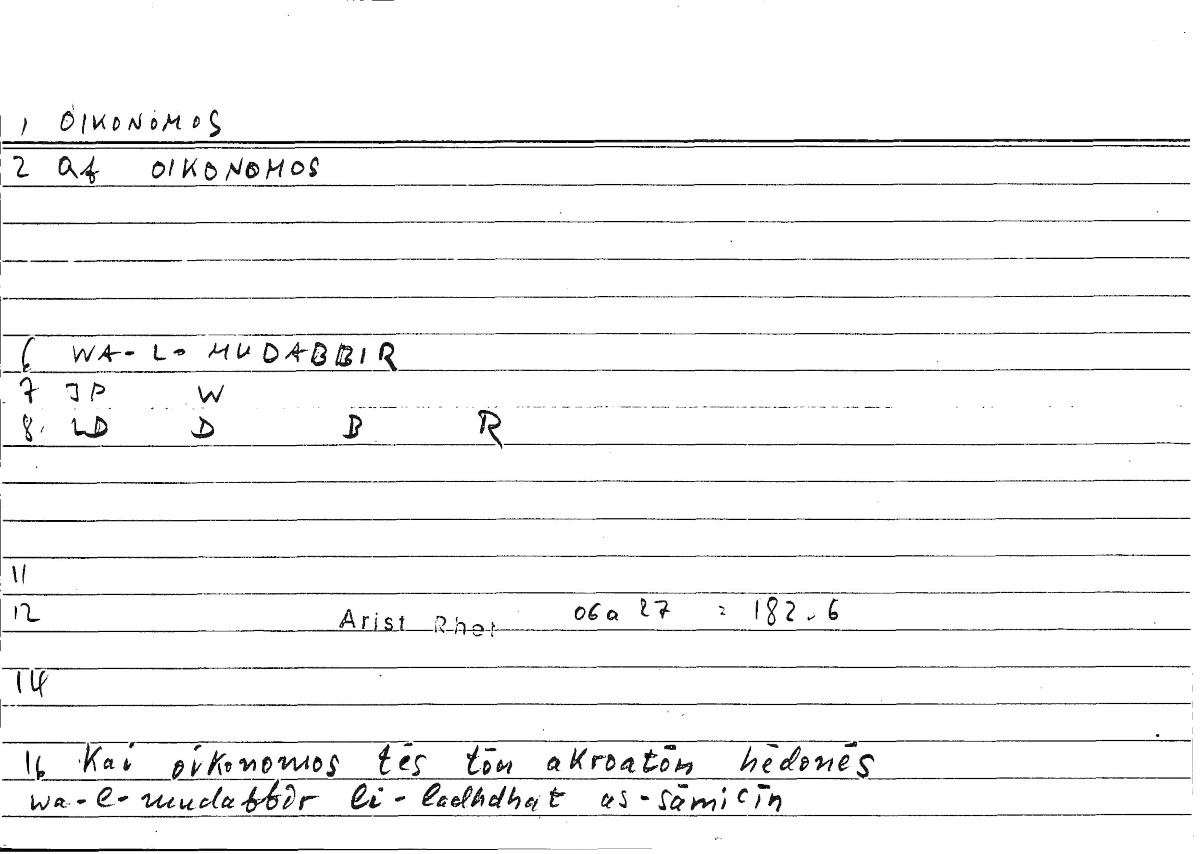 1 OIKONOMOS
2 Qf OIKONOMOS
6 WA-L-MUDABBIR
7 JP W
8. LD D B R
11
12 Arist Rhet 06a 27 = 182.6
14
16 Kai oikonomos tēs tōn akroatōn hēdonēs
wa-l-mudabbir li-ladhdhat as-sāmiʿīn